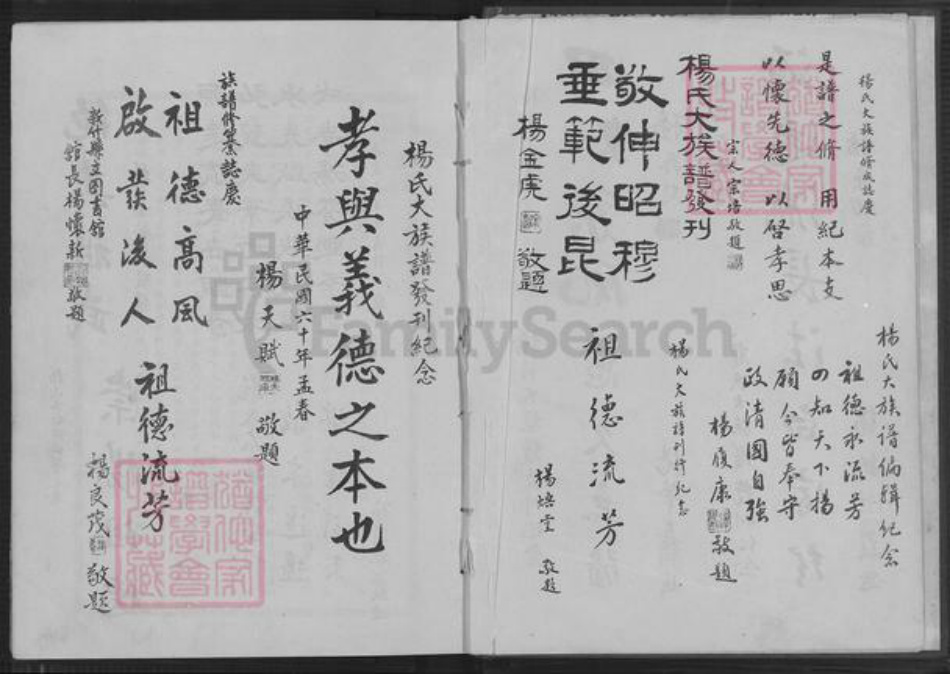 楊氏大族譜修成誌慶
是譜之脩 用紀本支
以懷先德 以啓孝思
宗人宗培敬題
楊氏大族譜發刊
敬伸昭穆
垂範後昆
楊金虎 敬題
楊氏大族譜編輯紀念
祖德永流芳
四知天下揚
願今皆奉守
政清國自強
楊復康 敬題
楊氏大族譜刊行紀念
祖德流芳
楊焙雲 敬題
楊氏大族譜發刊紀念
孝與義德之本也
中華民國六十年孟春
楊天賦 敬題
族譜修纂誌慶
祖德高風
啟發後人
彰化縣立圖書館
館長楊懷新敬題
祖德流芳
楊良茂 敬題
FamilySearch